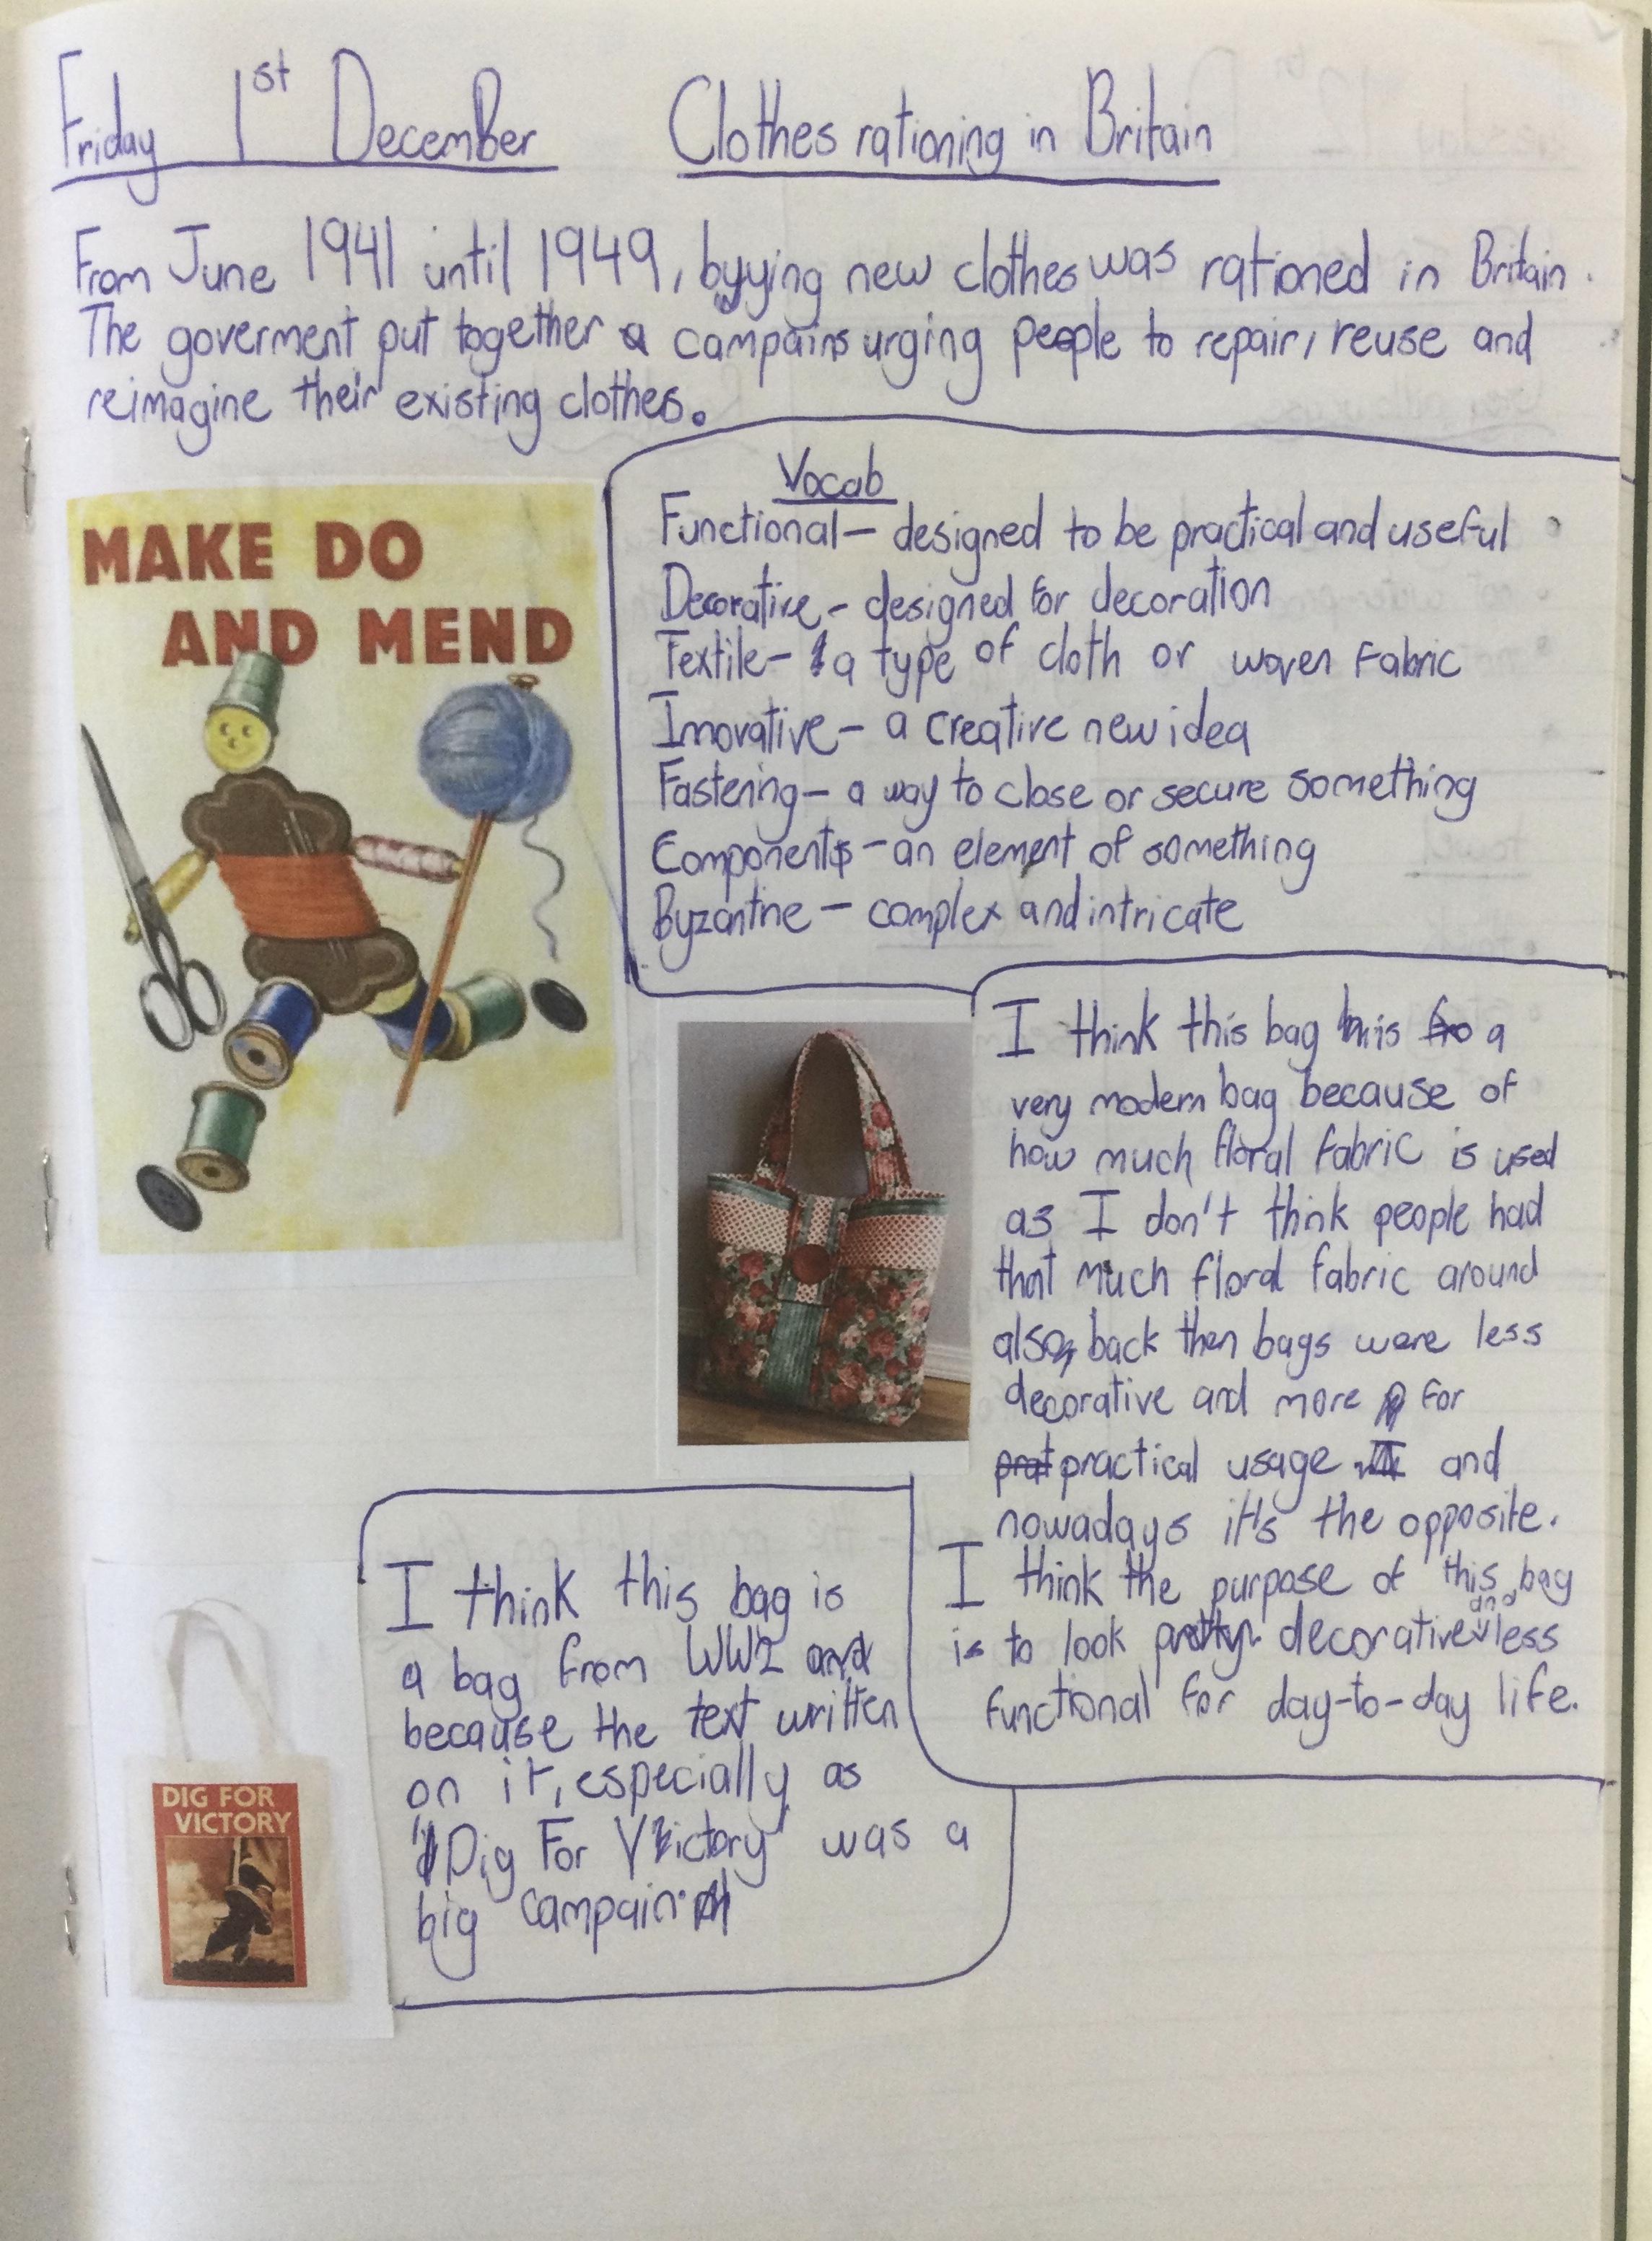 Friday 1st December
Clothes rationing in Britain
From June 1941 until 1949, buying new clothes was rationed in Britain.
The goverment put together a campains urging people to repair, reuse and
reimagine their existing clothes.
MAKE DO
AND MEND
Vocab
Functional - designed to be practical and useful
Decorative - designed for decoration
Textile - a type of cloth or woven fabric
Innovative - a creative new idea
Fastening - a way to close or secure something
Components - an element of something
Byzantine - complex and intricate
I think this bag is a
very modern bag because of
how much floral fabric is used
as I don't think people had
that much floral fabric around
also, back then bags were less
decorative and more for
practical usage and
nowadays it's the opposite.
I think the purpose of this bag
is to look decorative and less
functional for day-to-day life.
I think this bag is
a bag from WW2
because the text written
on it, especially as
"Dig For Victory" was a
big campain.
DIG FOR
VICTORY